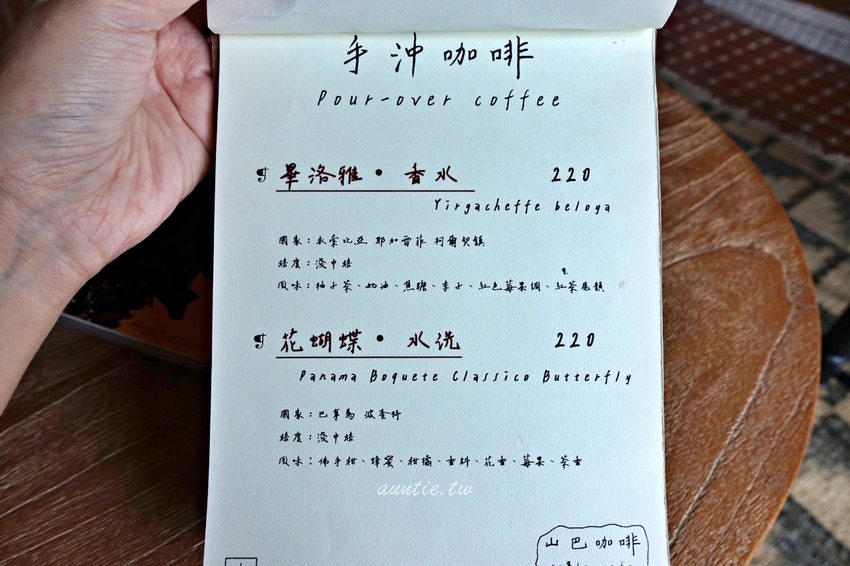 手沖咖啡
Pour-over coffee
畢洛雅•香水 220
Yirgacheffe beloya
國家:衣索比亞 耶加雪菲 柯爾契鎮
焙度:淺中焙
風味:柚子茶、奶油、焦糖、李子、紅色莓果調、紅茶尾韻
花蝴蝶•水洗 220
Panama Boquete Classico Butterfly
國家:巴拿馬 波奎特
焙度:淺中焙
風味:佛手柑、蜂蜜、柑橘、香料、花香、莓果、茶香
auntie.tw
山巴咖啡